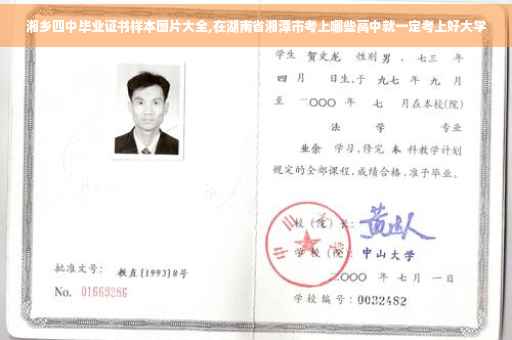 湘乡四中毕业证书样本图片大全,在湖南省湘潭市考上哪些高中就一定考上好大学
学生 贺文龙 性别 男 、七三 年
四 月 日生,于 九七 年 九 月
至 二〇〇〇 年 七 月在本校(院)
法 学 专业
业余 学习,修完 本 科教学计划
规定的全部课程,成绩合格,准予毕业。
校(院)长:
学 校(院): 中山大学
二〇〇〇 年 七 月 一 日
学校编号: 0032482
批准文号: 教直[1993]8号
No. 01663286